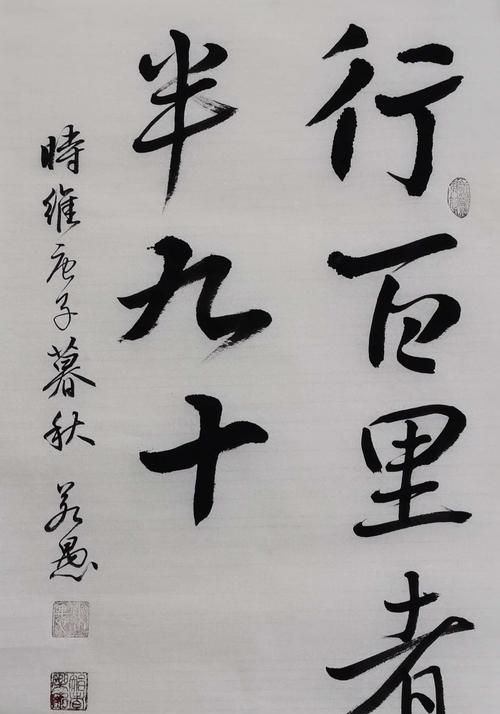 行百里者
半九十
時維庚子暮秋 若愚